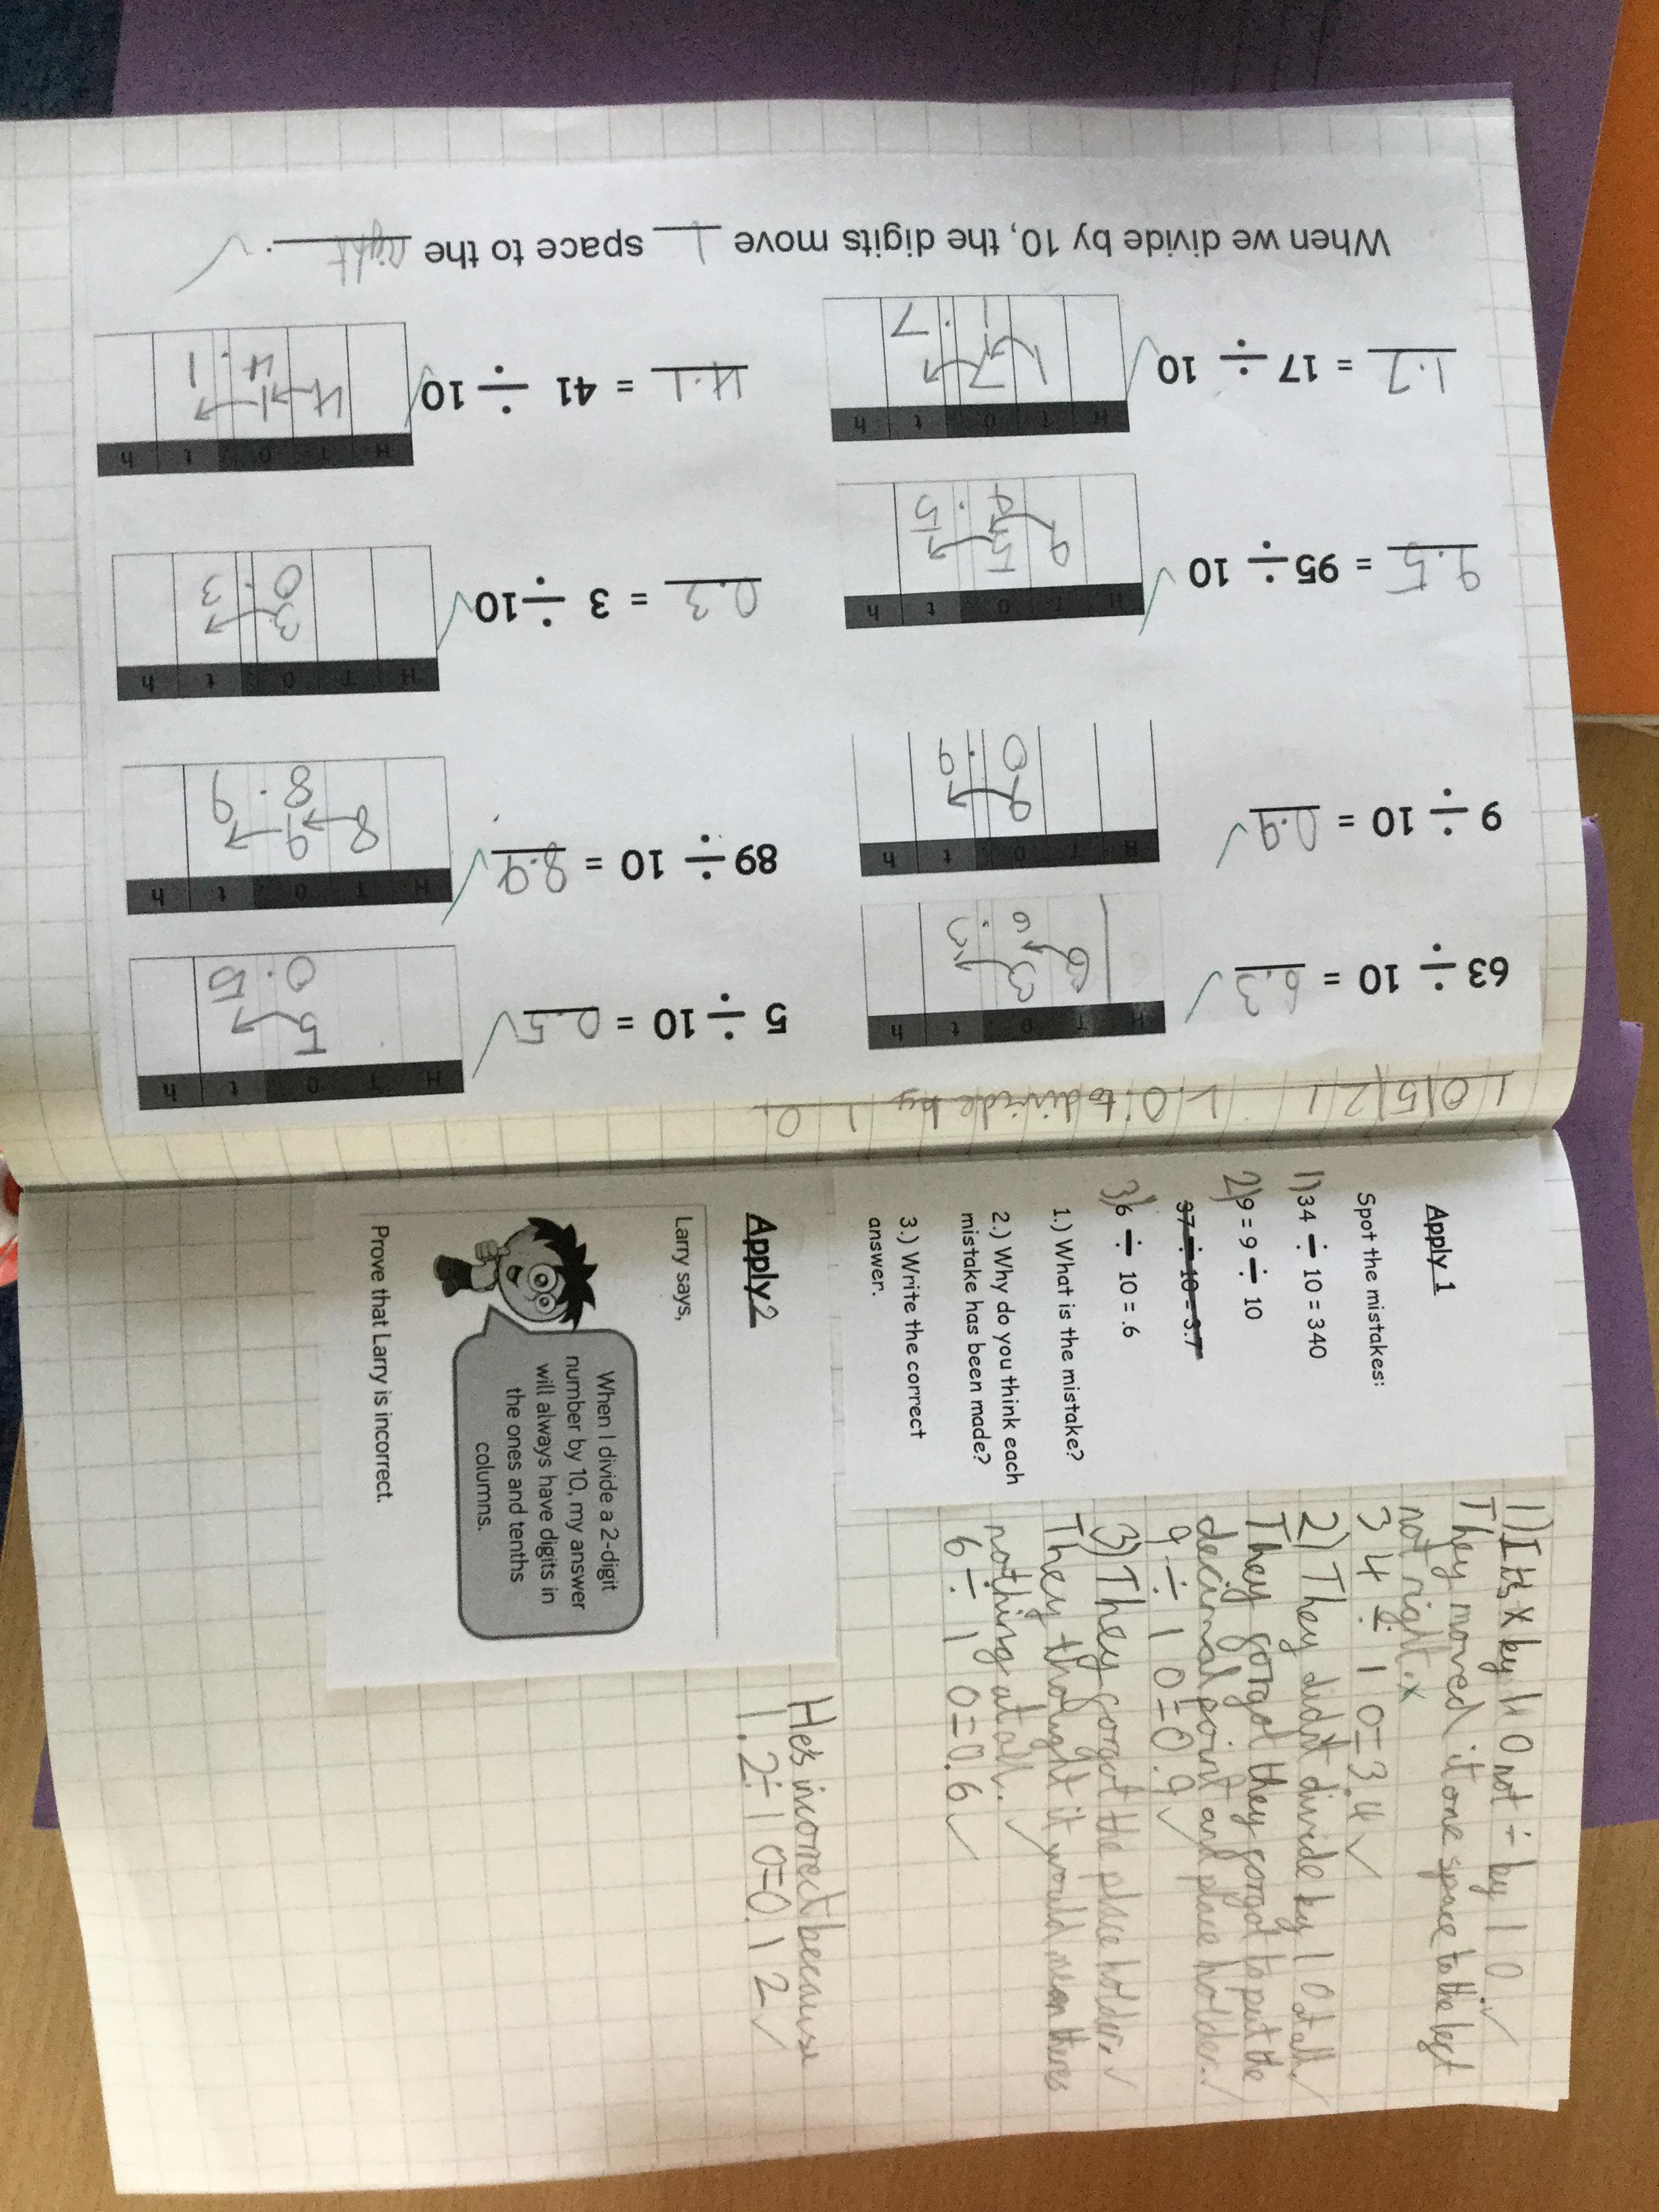 10/5/21 L.O: to divide by 10.
63 ÷ 10 = 6.3
H T O t h
6 3
6 . 3
5 ÷ 10 = 0.5
H T O t h
5
0 . 5
9 ÷ 10 = 0.9
H T O t h
9
0 . 9
89 ÷ 10 = 8.9
H T O t h
8 9
8 . 9
9.5 = 95 ÷ 10
H T O t h
9 5
9 . 5
0.3 = 3 ÷ 10
H T O t h
3
0 . 3
1.7 = 17 ÷ 10
H T O t h
1 7
1 . 7
4.1 = 41 ÷ 10
H T O t h
4 1
4 . 1
When we divide by 10, the digits move 1 space to the right.
Apply 1
Spot the mistakes:
1) 34 ÷ 10 = 340
2) 9 = 9 ÷ 10
37 ÷ 10 = 3.7
3) 6 ÷ 10 = .6
1.) What is the mistake?
2.) Why do you think each
mistake has been made?
3.) Write the correct
answer.
1) It's x by 10 not ÷ by 10.
They moved it one space to the left
not right.
34 ÷ 10 = 3.4
2) They didnt divide by 10 at all.
They forgot they forgot to put the
decimal point and place holder.
9 ÷ 10 = 0.9
3) They forgot the place holder.
They thought it would mean theres
nothing at all.
6 ÷ 10 = 0.6
Apply 2
Larry says,
When I divide a 2-digit
number by 10, my answer
will always have digits in
the ones and tenths
columns.
Prove that Larry is incorrect.
He's incorrect because
1.2 ÷ 10 = 0.12